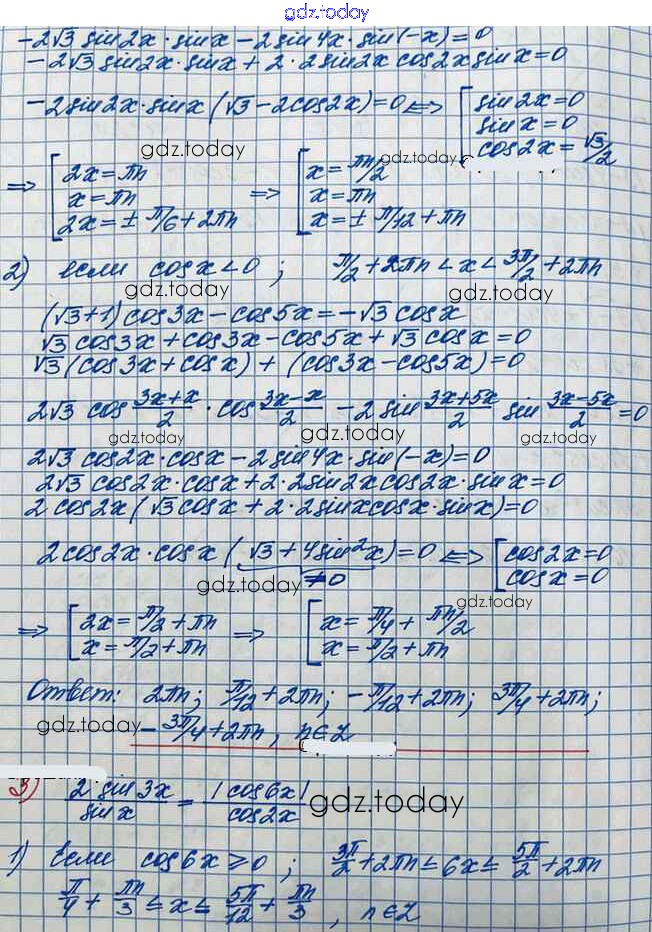 gdz.today
-2√3 sin2x · sinx - 2 sin4x · sin(-x) = 0
-2√3 sin2x · sinx + 2 · 2 sin2x cos2x sinx = 0
-2 sin2x · sinx (√3 - 2cos2x) = 0 <=> [ sin2x = 0
sinx = 0
cos2x = √3/2
gdz.today
gdz.today
=> [ 2x = πn => [ x = πn/2
x = πn x = πn
2x = ± π/6 + 2πn x = ± π/12 + πn
2) если cosx < 0 ; π/2 + 2πn < x < 3π/2 + 2πn
gdz.today
gdz.today
(√3+1) cos3x - cos5x = -√3 cosx
√3 cos3x + cos3x - cos5x + √3 cosx = 0
√3 (cos3x + cosx) + (cos3x - cos5x) = 0
2√3 cos (3x+x)/2 · cos (3x-x)/2 - 2 sin (3x+5x)/2 sin (3x-5x)/2 = 0
gdz.today gdz.today gdz.today
2√3 cos2x · cosx - 2 sin4x · sin(-x) = 0
2√3 cos2x · cosx + 2 · 2 sin2x cos2x · sinx = 0
2 cos2x (√3 cosx + 2 · 2 sinx cosx · sinx) = 0
2 cos2x · cosx (√3 + 4 sin²x) = 0 <=> [ cos2x = 0
≠ 0 cosx = 0
gdz.today
gdz.today
=> [ 2x = π/2 + πn => [ x = π/4 + πn/2
x = π/2 + πn x = π/2 + πn
Ответ: 2πn; π/12 + 2πn; -π/12 + 2πn; 3π/4 + 2πn;
gdz.today
-3π/4 + 2πn, n∈Z
3) 2 sin3x / sinx = |cos6x| / cos2x
gdz.today
1) Если cos6x ≥ 0 ; 3π/2 + 2πn ≤ 6x ≤ 5π/2 + 2πn
π/4 + πn/3 ≤ x ≤ 5π/12 + πn/3 , n∈Z